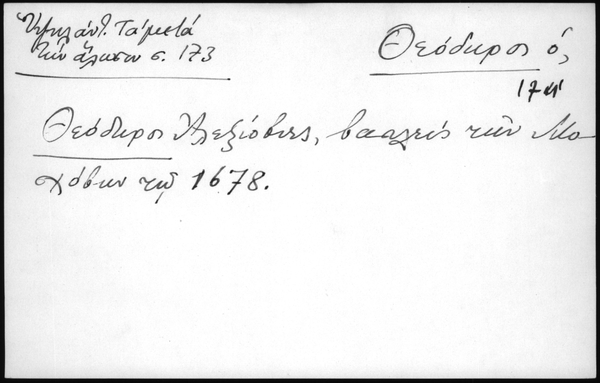 Ὑψηλάντ. Τὰ μετὰ
τὴν ἅλωσιν σ. 173
Θεόδωρος ὁ,
Θεόδωρος Ἀλεξιόβιτς, βασιλεὺς τῶν Μο-
σχόβων τῷ 1678.